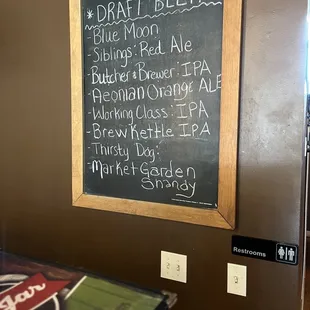 * DRAFT BEER
- Blue Moon
- Siblings: Red Ale
- Butcher & Brewer: IPA
- Aeonian Orange ALE
- Working Class: IPA
- Brew Kettle IPA
- Thirsty Dog:
- Market Garden
Shandy
Restrooms
gar